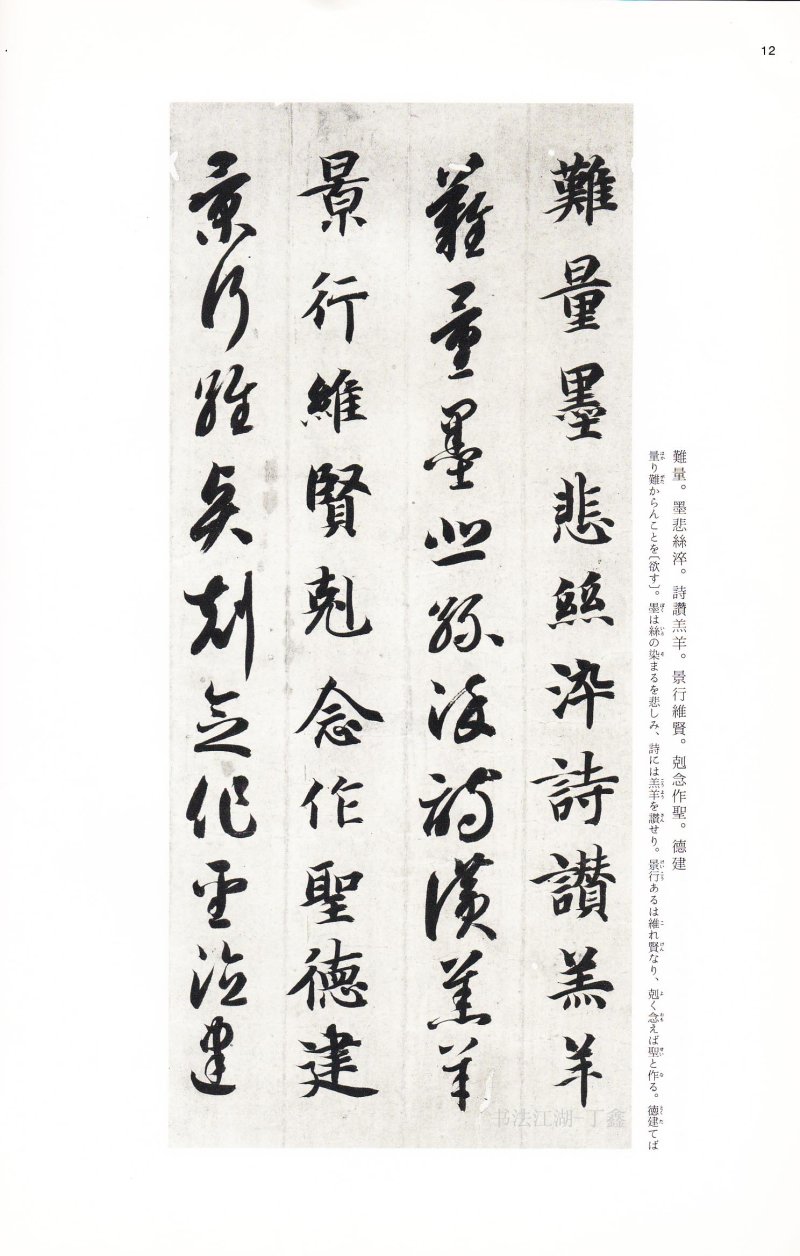 12
難量。墨悲絲淬。詩讚羔羊。景行維賢。剋念作聖。德建
量り難からんことを〔欲す〕。墨は絲の染まるを悲しみ、詩には羔羊を讚せり。景行あるは維れ賢なり、剋く念えば聖と作る。德建てば
難量墨悲絲淬詩讚羔羊
難量墨悲絲淬詩讚羔羊
景行維賢剋念作聖德建
景行維賢剋念作聖德建
书法江湖-丁鑫